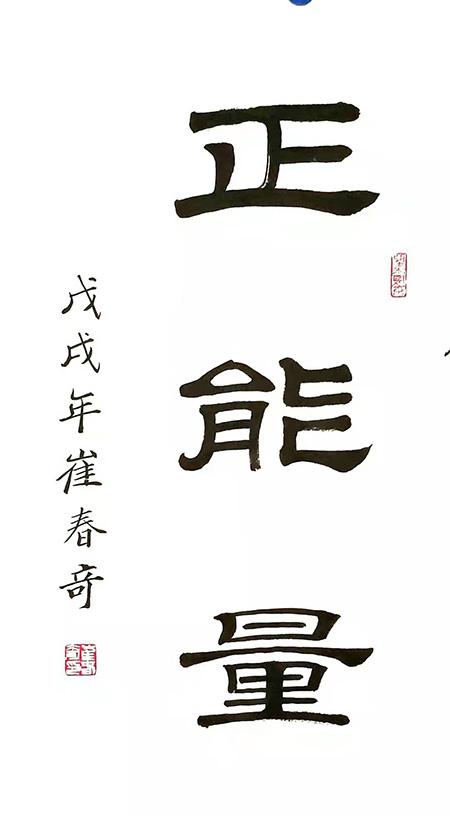 正能量
戊戌年崔春奇